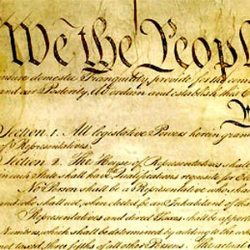 We the People
insure domestic Tranquility, provide for the com
and our Posterity, do ordain and establish this C
Section. 1. All legislative Powers herein gran
of Representatives.
Section. 2. The House of Representatives shall
in each State shall have the Qualifications requisite for El
No Person shall be a Representative who shall
and who shall not, when elected, be an Inhabitant of that
Representatives and direct Taxes shall be appor
Numbers, which shall be determined by adding to the
three fifths of all other Persons